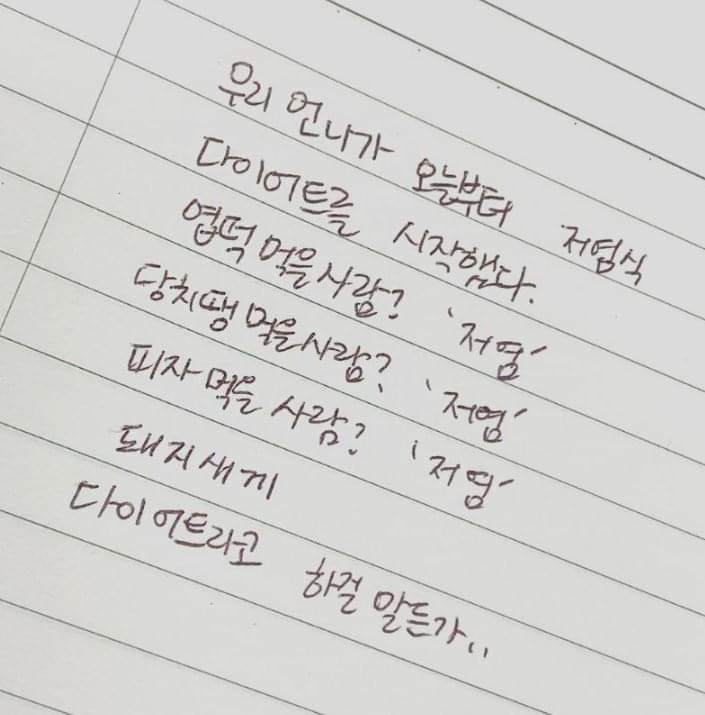 우리 언니가 오늘부터 저염식
다이어트를 시작했다.
엽떡 먹을사람? '저염'
당치땡 먹을사람? '저염'
피자 먹을 사람? '저염'
돼지새끼
다이어트라고 하걸 말든가..